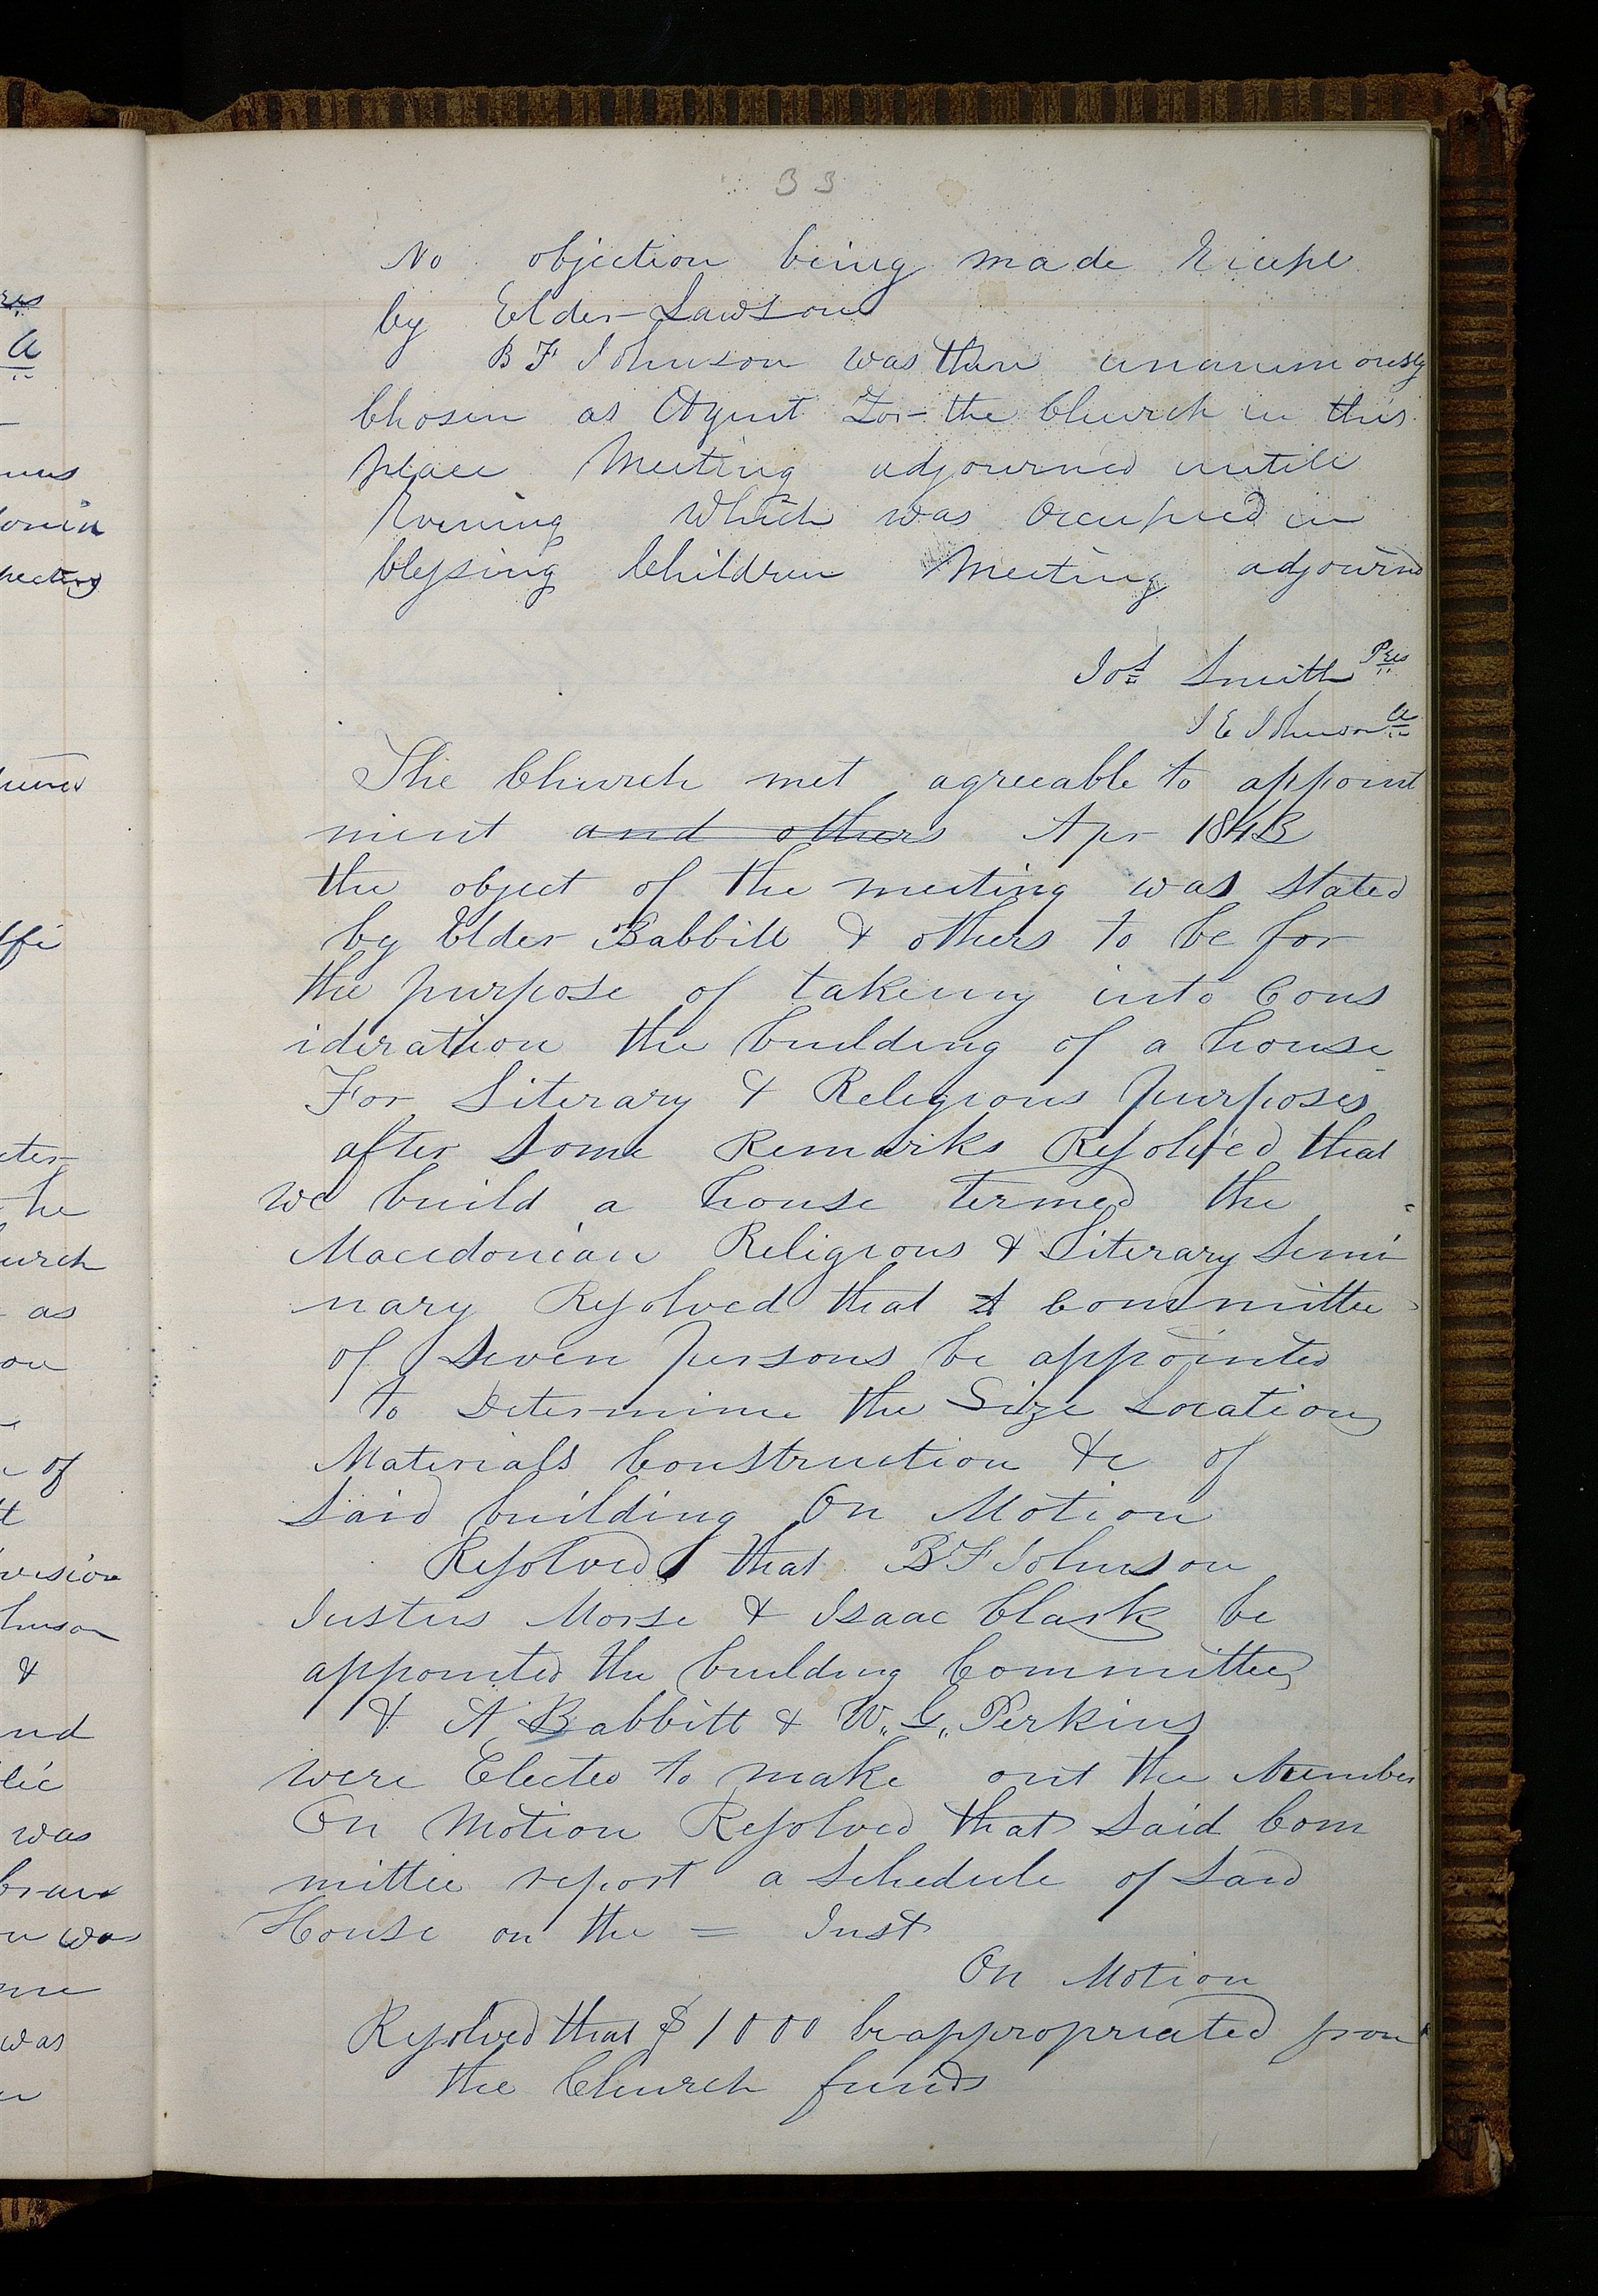 33
No objection being made Exept
by Elder Lawson
B F Johnson was then unanimously
Chosen as Agent For the Church in this
place Meeting adjourned untill
Evening Which was Occupied in
blessing Children Meeting adjournd
Jos Smith Pres
J E Johnson Cl
The Church met agreeable to appoint
ment and others Apr 1843
the object of the meeting was stated
by Elder Babbitt & others to be for
the purpose of takeing into Cons
ideration the building of a house
For Literary & Religious purposes
after some Remarks Resolved that
we build a house termed the
Macedonian Religious & Literary Semi
nary Resolved that A Committee
of Seven persons be appointed
to Determine the Size Location
Materials Construction &c of
Said building On Motion
Resolved that B F Johnson
Justus Morse & Isaac Clark be
appointed the building Committee
& A Babbitt & W. G. Perkins
were Elected to make out the Number
On Motion Resolved that Said Com
mittee report a Schedule of Said
House on the = Inst
On Motion
Resolved that $1000 be appropriated from
the Church funds